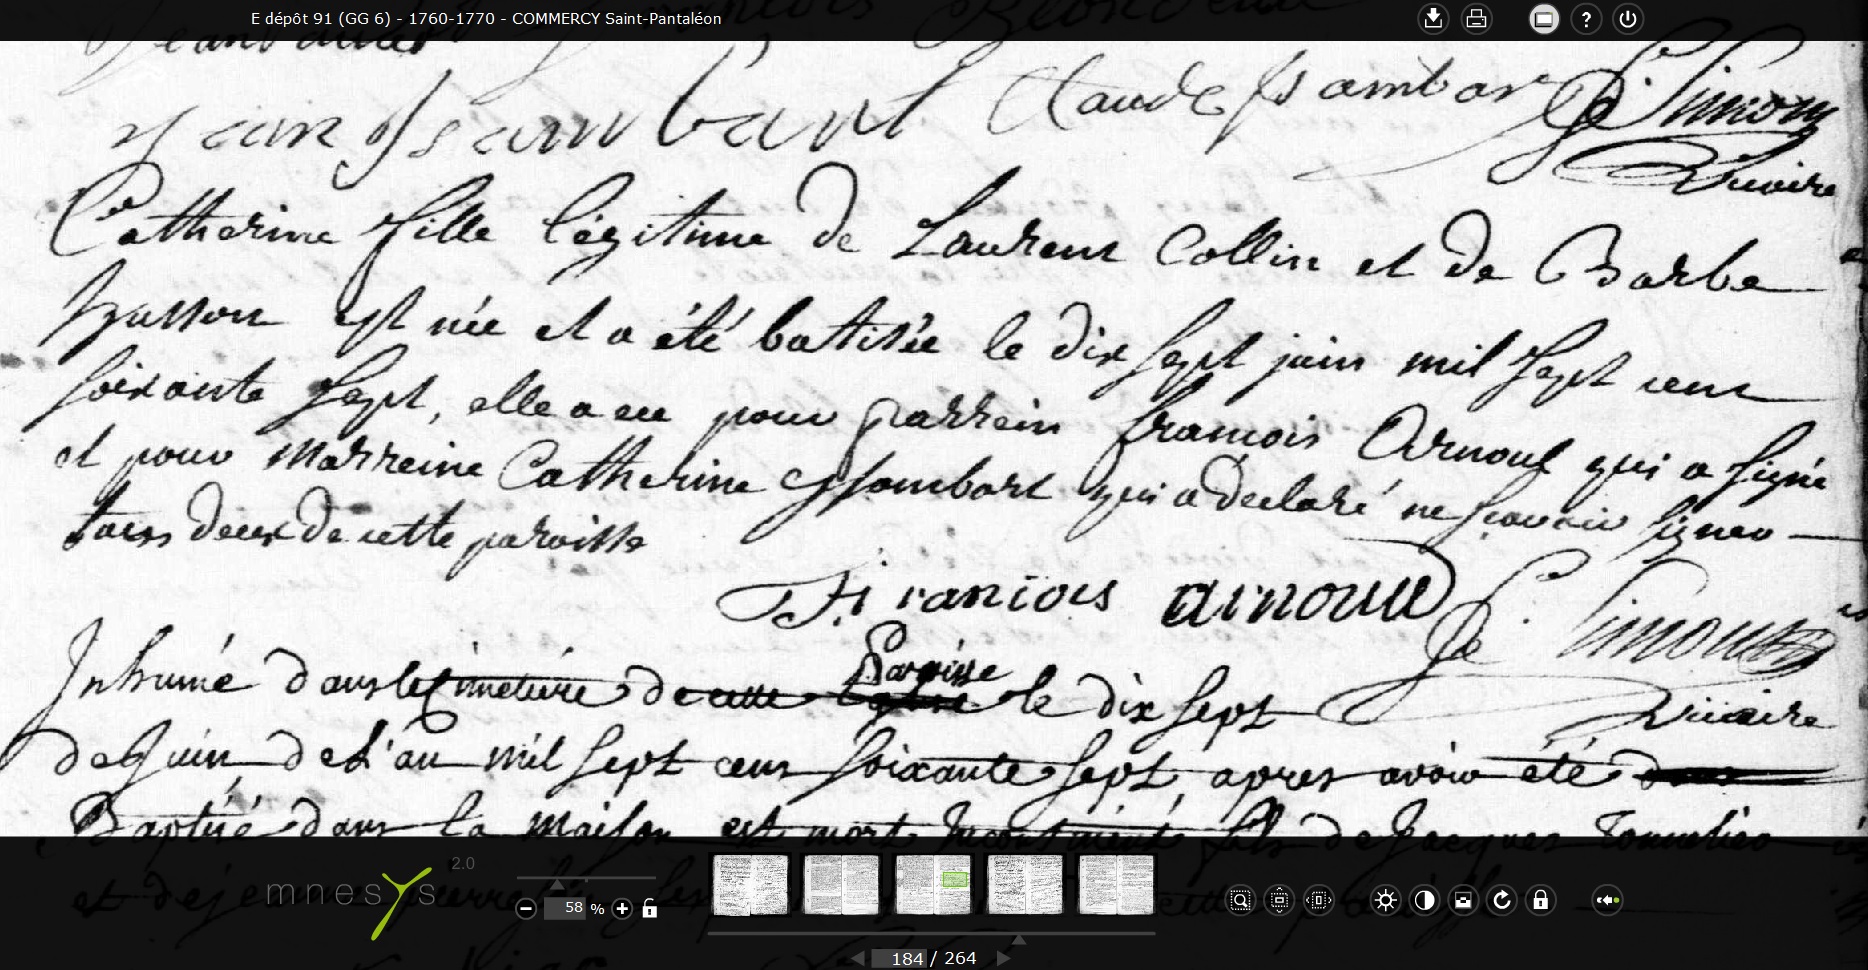 E dépôt 91 (GG 6) - 1760-1770 - COMMERCY Saint-Pantaléon
Claude
Simon
Vicaire
Catherine fille légitime de Laurent Collin et de Barbe
husson est née et a été batisée le dix sept juin mil sept cent
soixante sept, elle a eu pour parrein françois Arnout qui a signé
et pour Marreine Catherine qui a declaré ne sçavoir signer
tous deux de cette paroisse
François arnould
Simon
Vicaire
Paroisse
Inhumé dans le Cimetiére de cette Eglise le dix sept
de Juin de L'an mil sept cens soixante sept, apres avoir été
Baptisé dans la maison est mort fils de Jacques Tonnelier
mnesys 2.0
58 %
184 / 264